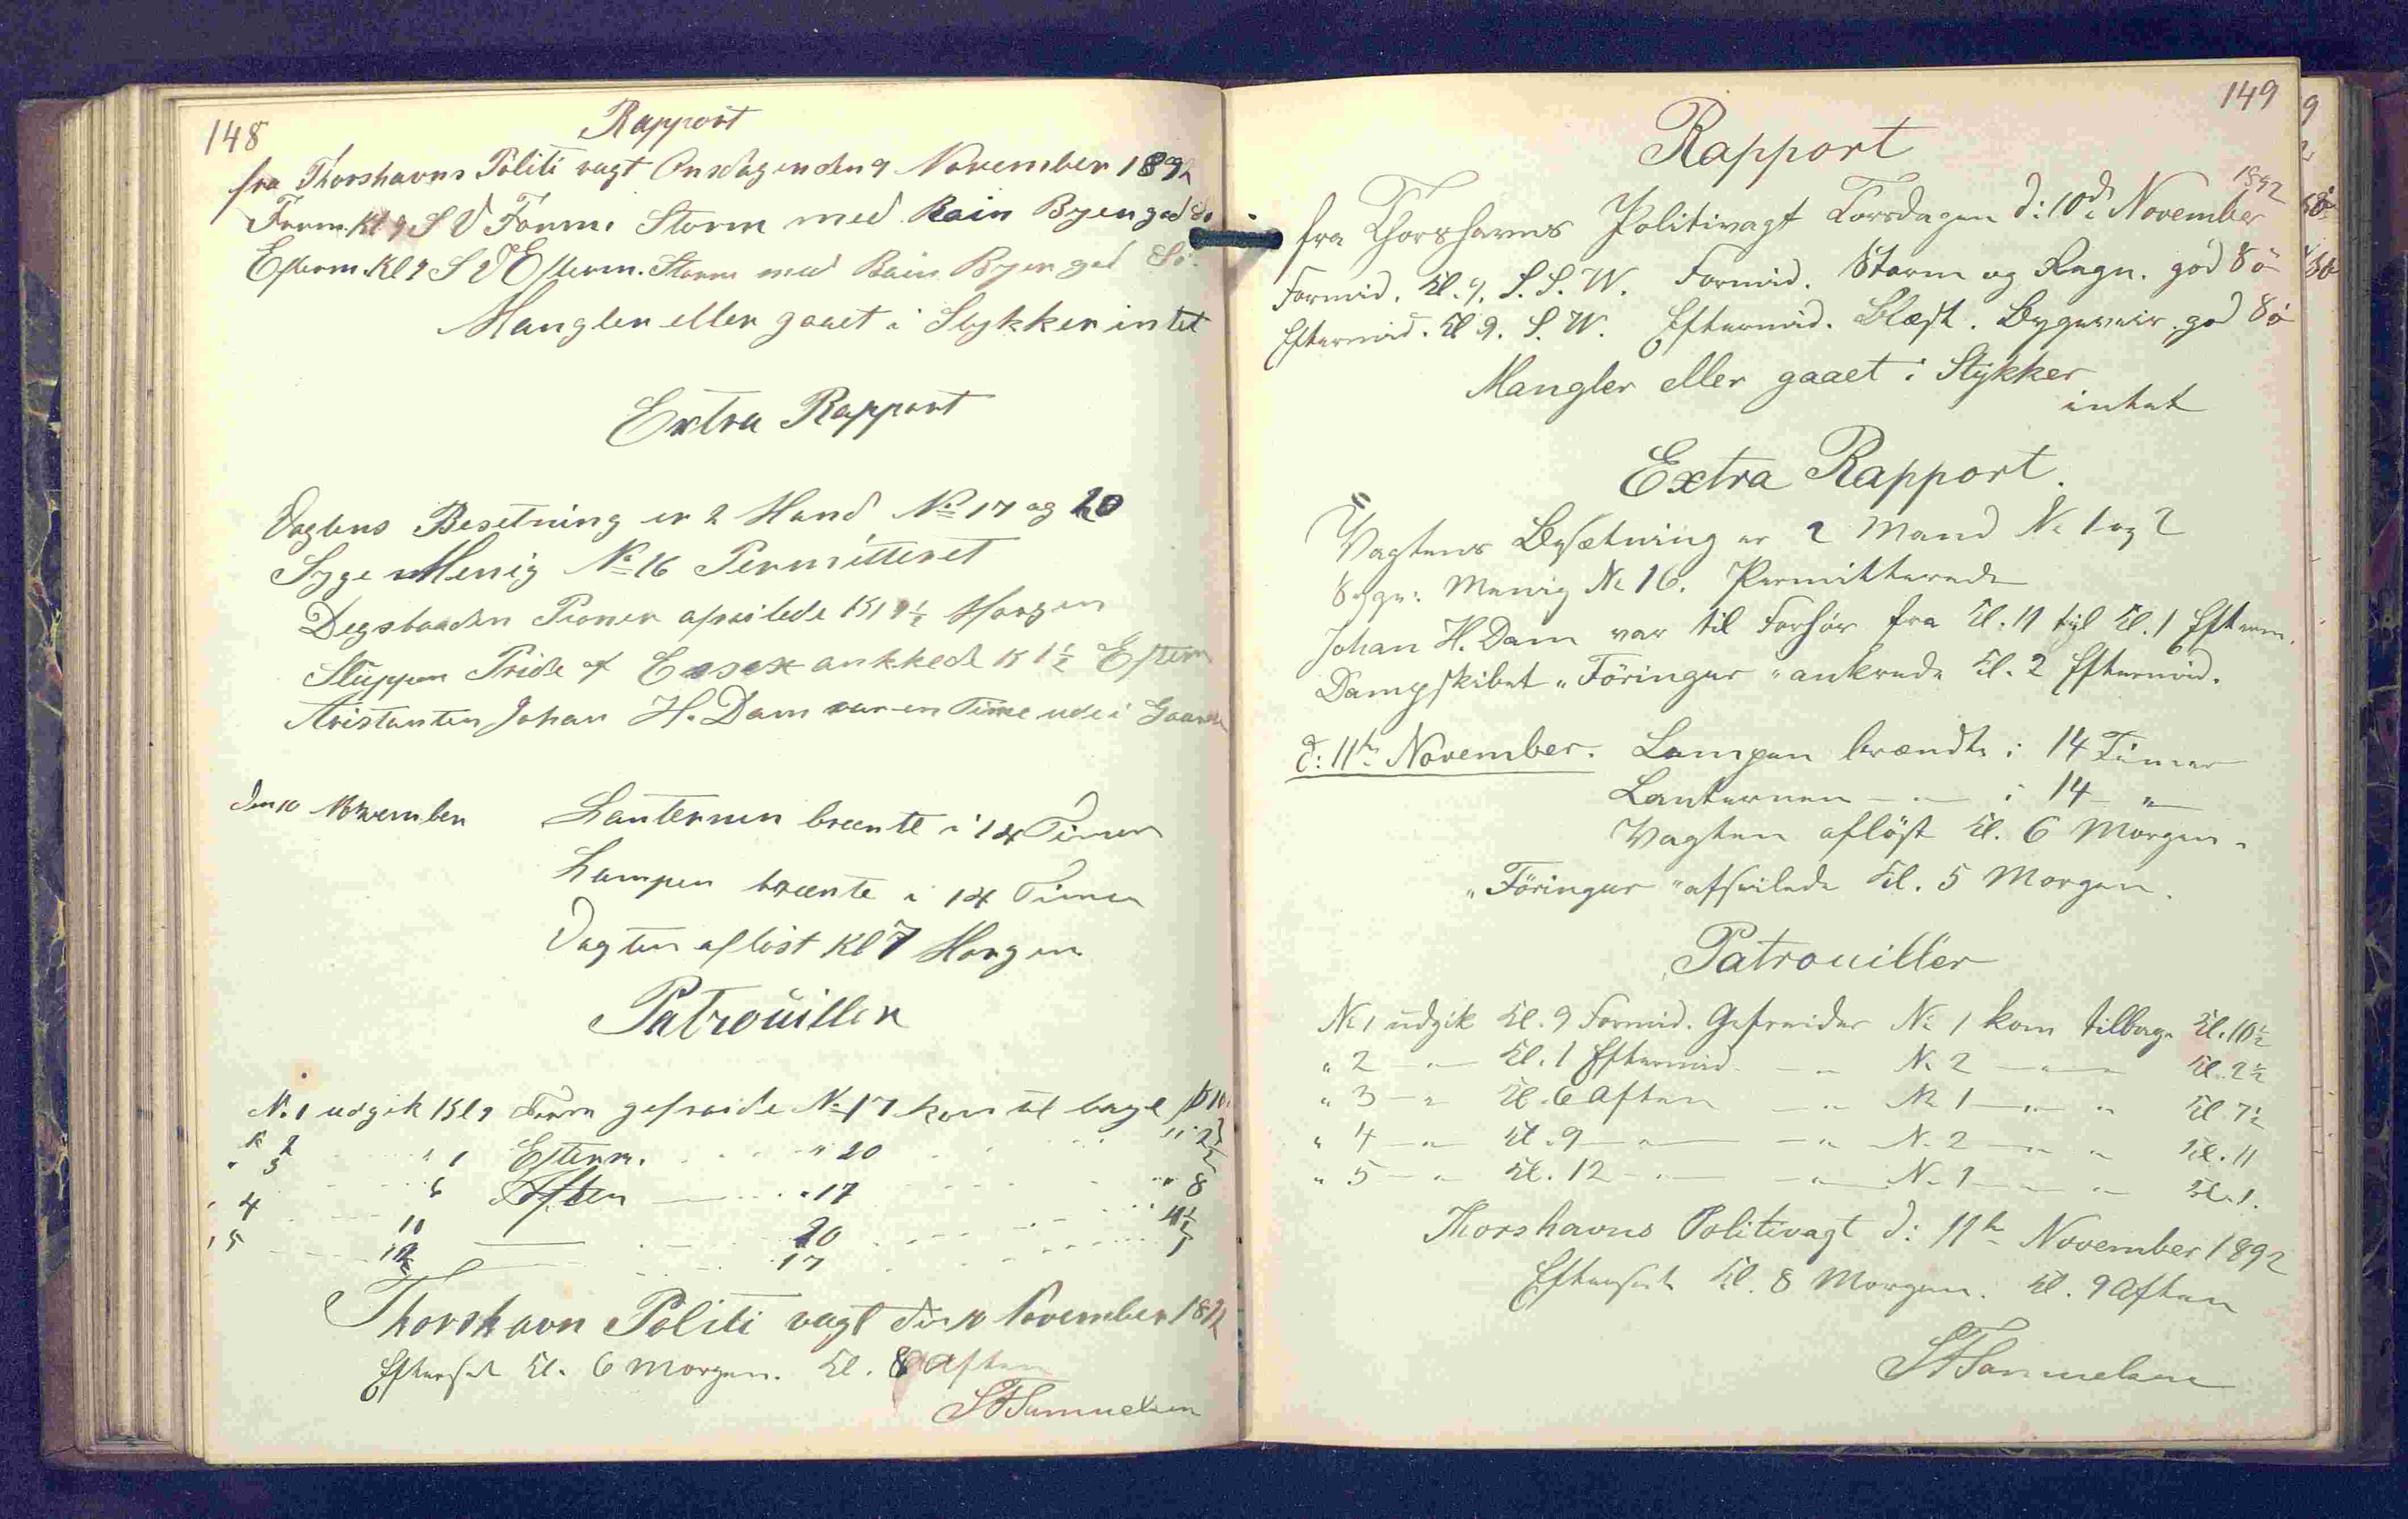 148
Rapport
fra Thorshavns Politi vagt Onsdagen den 9 November 1892
Form. Kl 9 S V Form. Storm med Rain Byen god Sö
Efterm. Kl 9 S V Efterm. Storm med Rain Byen god Sö.
Mangler eller gaaet i Stykker intet
Extra Rapport
Vagtens Besetning er 2 Mand No 17 og 20
Syge Menig No 16 Permitteret
Degsbaaden Proner afseilede Kl 9½ Morgen
Sluppen Pride of Essex ankkede Kl 1½ Efterm
Aristanten Johan H. Dam var en Time ude i Gaarden
den 10 November Lanternen brænte i 14 Timer
Lampen brænte i 14 Timer
Vagten aflöst Kl 7 Morgen
Patrouiller
No. 1 udgik Kl 9 Form gefreide No 17 kom til bage Kl 10
2 " 1 Efterm. " 20 " 2½
" 3 6 Aften " 17 " 8
" 4 10 20 11½
" 5 12 17 1
Thorshavn Politi vagt den 10 November 1892
Efterset Kl. 6 Morgen. Kl. 8 Aften
Samuelsen
149
Rapport
1892
fra Thorshavns Politivagt Torsdagen d: 10de November
Formid. Kl. 9. S.S.W. Formid. Storm og Regn. god Sö
Eftermid. Kl 9. S.W. Eftermid. Blæst. Bygeveir. god Sö
Mangler eller gaaet i Stykker
intet
Extra Rapport.
Vagtens Besætning er 2 Mand No 1 og 2
Syge: Menig No 16. Permitterede
Johan H. Dam var til Forhör fra Kl. 11 til Kl. 1 Efterm.
Dampskibet "Föringur" ankrede Kl. 2 Eftermid.
d: 11te November. Lampen brændte i 14 Timer
Lanternen — " — i 14 — "
Vagten aflöst Kl. 6 Morgen.
"Föringur" afseilede Kl. 5 Morgen.
Patrouiller
No 1 udgik Kl. 9 Formid. Gefreider No 1 kom tilbage Kl. 10½
" 2 — " — Kl. 1 Eftermid. — " No 2 — " — Kl. 2½
" 3 — " Kl. 6 Aften — " No 1 — " — " Kl. 7½
" 4 — " Kl. 9 — " — — " No. 2 — " " Kl. 11
" 5 — " Kl. 12 — " — — " No. 1 — " — Kl. 1.
Thorshavns Politivagt d: 11te November 1892
Efterset Kl. 8 Morgen. Kl. 9 Aften
Samuelsen